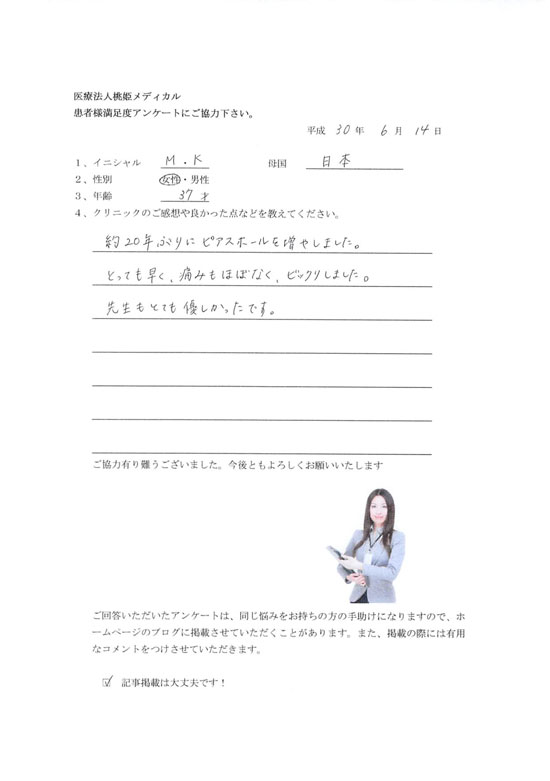 医療法人桃姫メディカル
患者様満足度アンケートにご協力下さい。
平成 30 年 6 月 14 日
1、イニシャル M.K 母国 日本
2、性別 女性・男性
3、年齢 37才
4、クリニックのご感想や良かった点などを教えてください。
約20年ぶりにピアスホールを増やしました。
とっても早く、痛みもほぼなく、ビックリしました。
先生もとても優しかったです。
ご協力有り難うございました。今後ともよろしくお願いいたします
ご回答いただいたアンケートは、同じ悩みをお持ちの方の手助けになりますので、ホ
ームページのブログに掲載させていただくことがあります。また、掲載の際には有用
なコメントをつけさせていただきます。
☑ 記事掲載は大丈夫です！